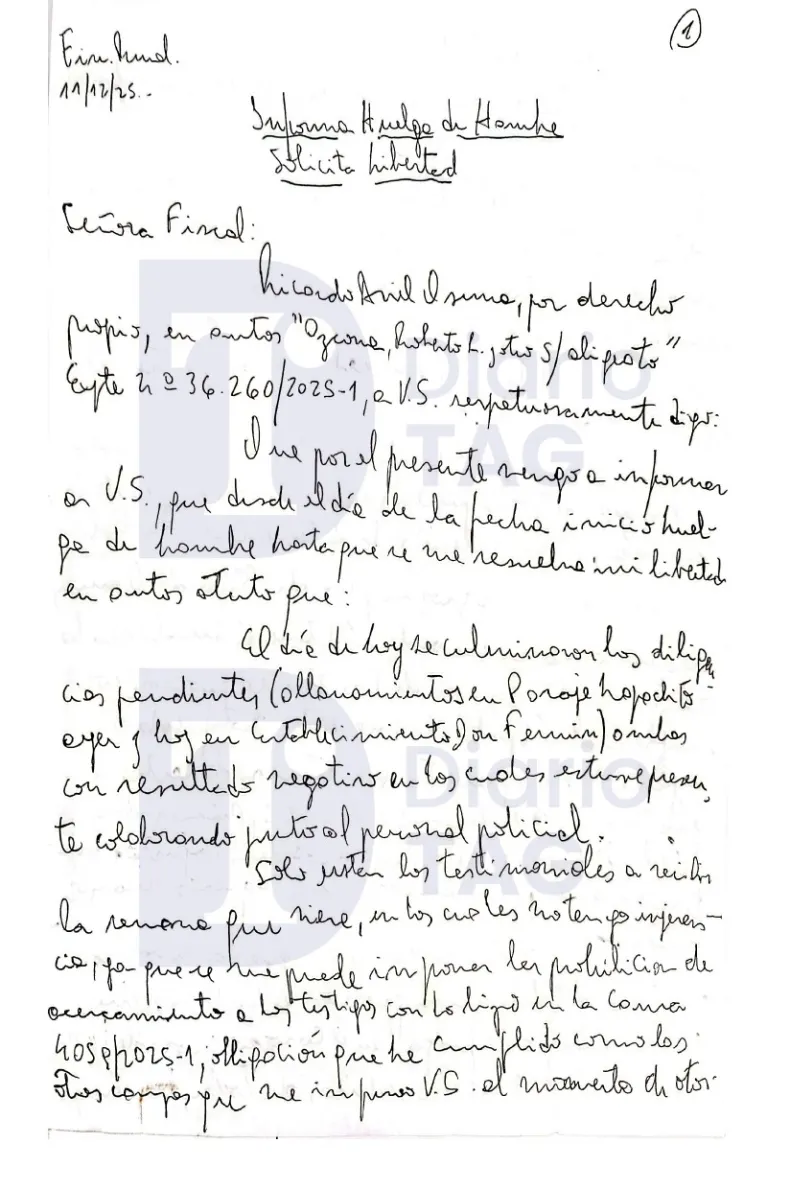 1
11/12/25.-
Informa Huelga de Hambre
Solicita Libertad
Señora Fiscal:
Ricardo Ariel Osuna, por derecho
propio, en autos "Ozcona, Roberto L. y otro s/ abigeato"
Expte nº 36.260/2025-1, a V.S. respetuosamente digo:
Que por el presente vengo a informar
a V.S., que desde el día de la fecha inicio huel-
ga de hambre hasta que se me resuelva mi libertad
en autos atento que:
El día de hoy se culminaron las diligen
cias pendientes (allanamientos en Paraje Lapachito
ayer y hoy en Establecimiento Don Fermin) ambos
con resultado negativo en los cuales estuve presen
te colaborando junto al personal policial.
Solo restan las testimoniales a recibir
la semana que viene, en los cuales no tengo injeren-
cia, ya que se me puede imponer la prohibición de
acercamiento a los testigos como lo hizo en la Causa
2025-1, obligación que he cumplido como las
otras cargas que me impuso V.S. al momento de otor-
Diario
TAG
Diario
TAG